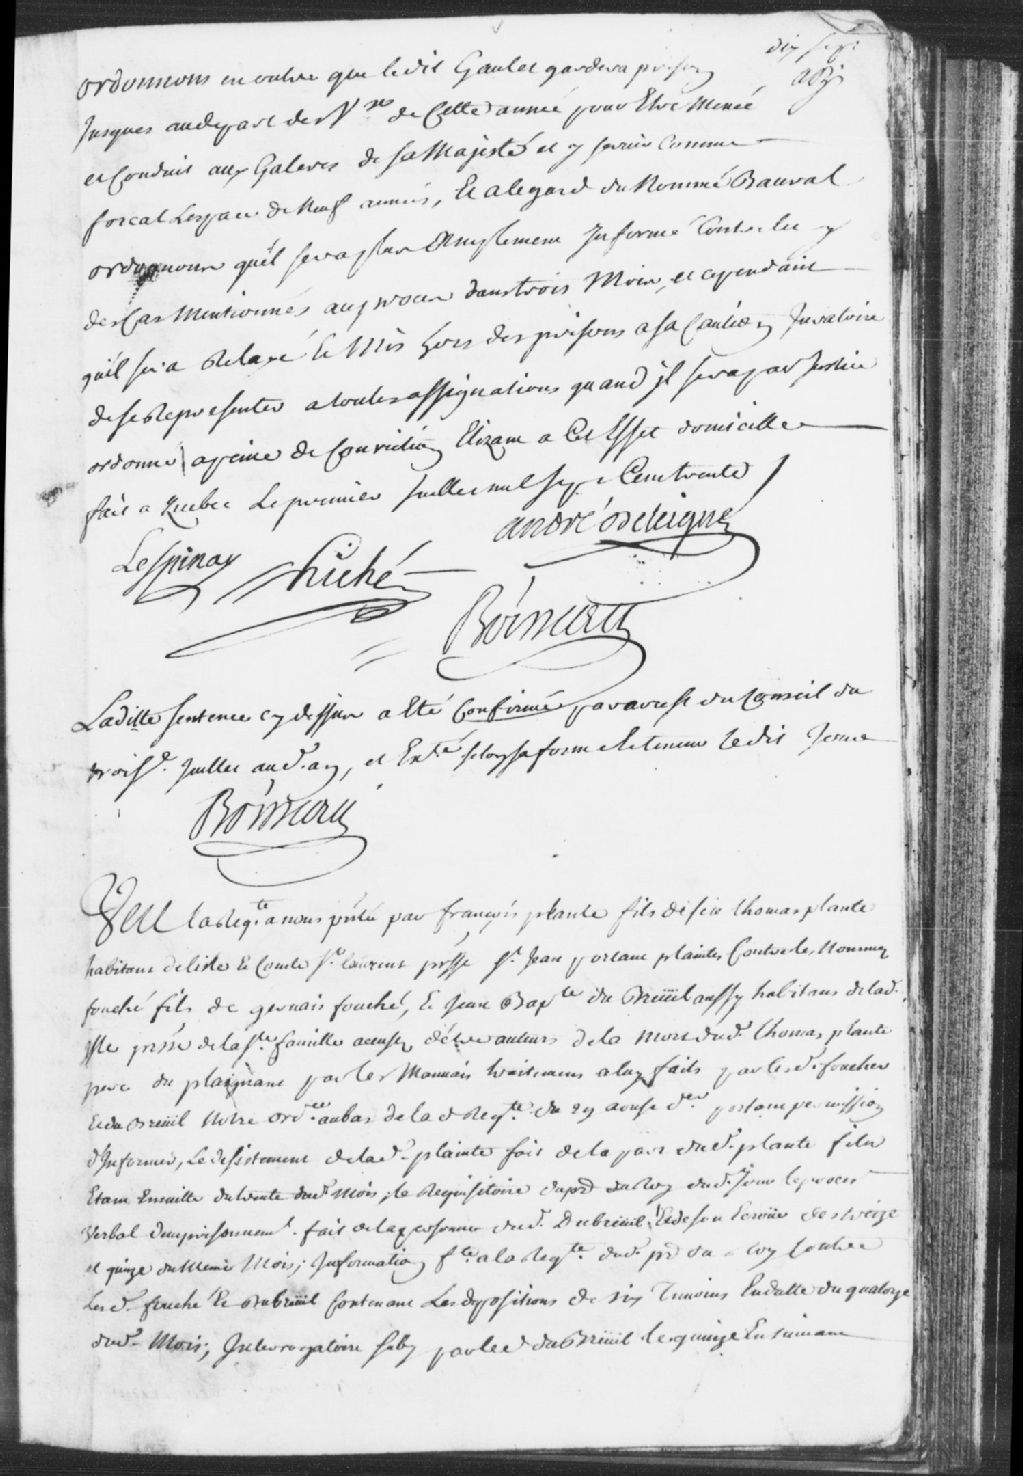 dix sept
ordonnons en outre que ledit Gaulet gardera prison
Jusques au depart des Vxs de Cette année pour Etre Mené
et Conduit aux Galeres de sa Majesté et y servir Comme
forcat Lespace de Neuf années, Et alegard du Nommé Bauval
ordonnons qu'il sera plus Amplement Informé Contre luy
des Cas Mentionnés au proces dans trois Mois, et cependant
qu'il sera Relaxé Et Mis hors des prisons a sa Caution Juratoire
de se Representer a toutes assignations quand jl sera par Justice
ordonné a peine de Conviction Elizant a Cet Effet domicille
fait a Quebec Le premier Juillet mil sept Cent trente
André De leigne
Lespinay Hiché
Boisseau
Laditte sentence cy dessus a Eté Confirmé par arrest du Conseil du
trois d. Juillet aud. an, et Exée selon sa forme et teneur ledit Jour
Boisseau
Veu la Reqte a nous pntée par françois plante fils de feu thomas plante
habitant de lisle Et Comté St laurent pssse St Jean portant plainte Contre les Nommez
fouché fils de gervais fouché, Et Jean Bapte du Breüil aussy habitans de lad.
isle psse de la Ste famille accusez d'étre auteurs de la Mort dud. thomas plante
pere du plaignant par les Mauvais traitemens a luy faits par lesd. foucher
Et du Breüil Notre ordce au bas de lad Reqte du 29 aoust der portant permission
d'Informer, Le desistement de lad. plainte fait de la part dud. plante fils
Etant Ensuitte du trente dud. Mois, le Requisitoire du pr du Roy dud. Jour le proces
Verbal d'emprisonnemt. fait de la personne dud. Dubreüil Et de son Ecroüe des treize
et quinze du Meme Mois; Information fte a la Reqte dud. pr du Roy Contre
Lesd. fouché Et Dubreüil Contenant Les depositions de six Temoins En datte du quatorze
dud. Mois; Interrogatoire suby par led dubreüil le quinze Ensuivant